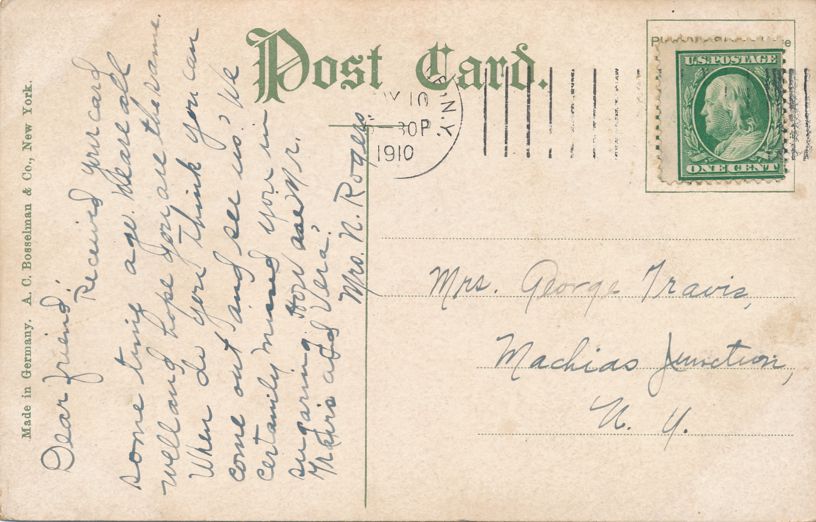 Post Card.
Made in Germany. A. C. Bosselman & Co., New York.
U.S. POSTAGE
ONE CENT
N.Y.
10
30P
1910
Dear friend:
Received your card
some time ago. We are all
well and hope you are the same.
When do you think you can
come out and see us? We
certainly missed you in
sugaring. How are Mr.
Travis and Vera?
Mrs. N. Rogers
Mrs. George Travis,
Machias Junction,
N. Y.